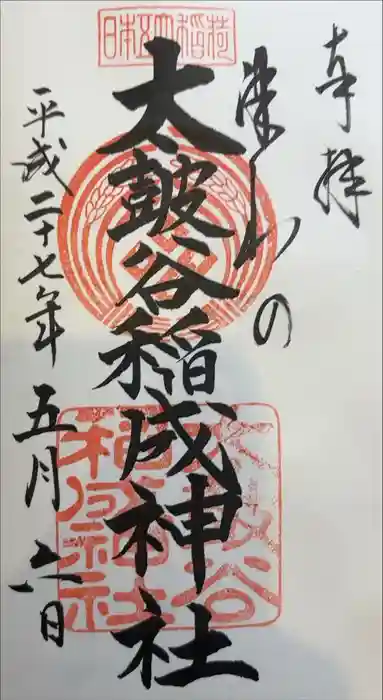 奉拝
津和野
太皷谷稲成神社
平成二十七年五月六日
日本五大稲荷
太皷谷稲成神社